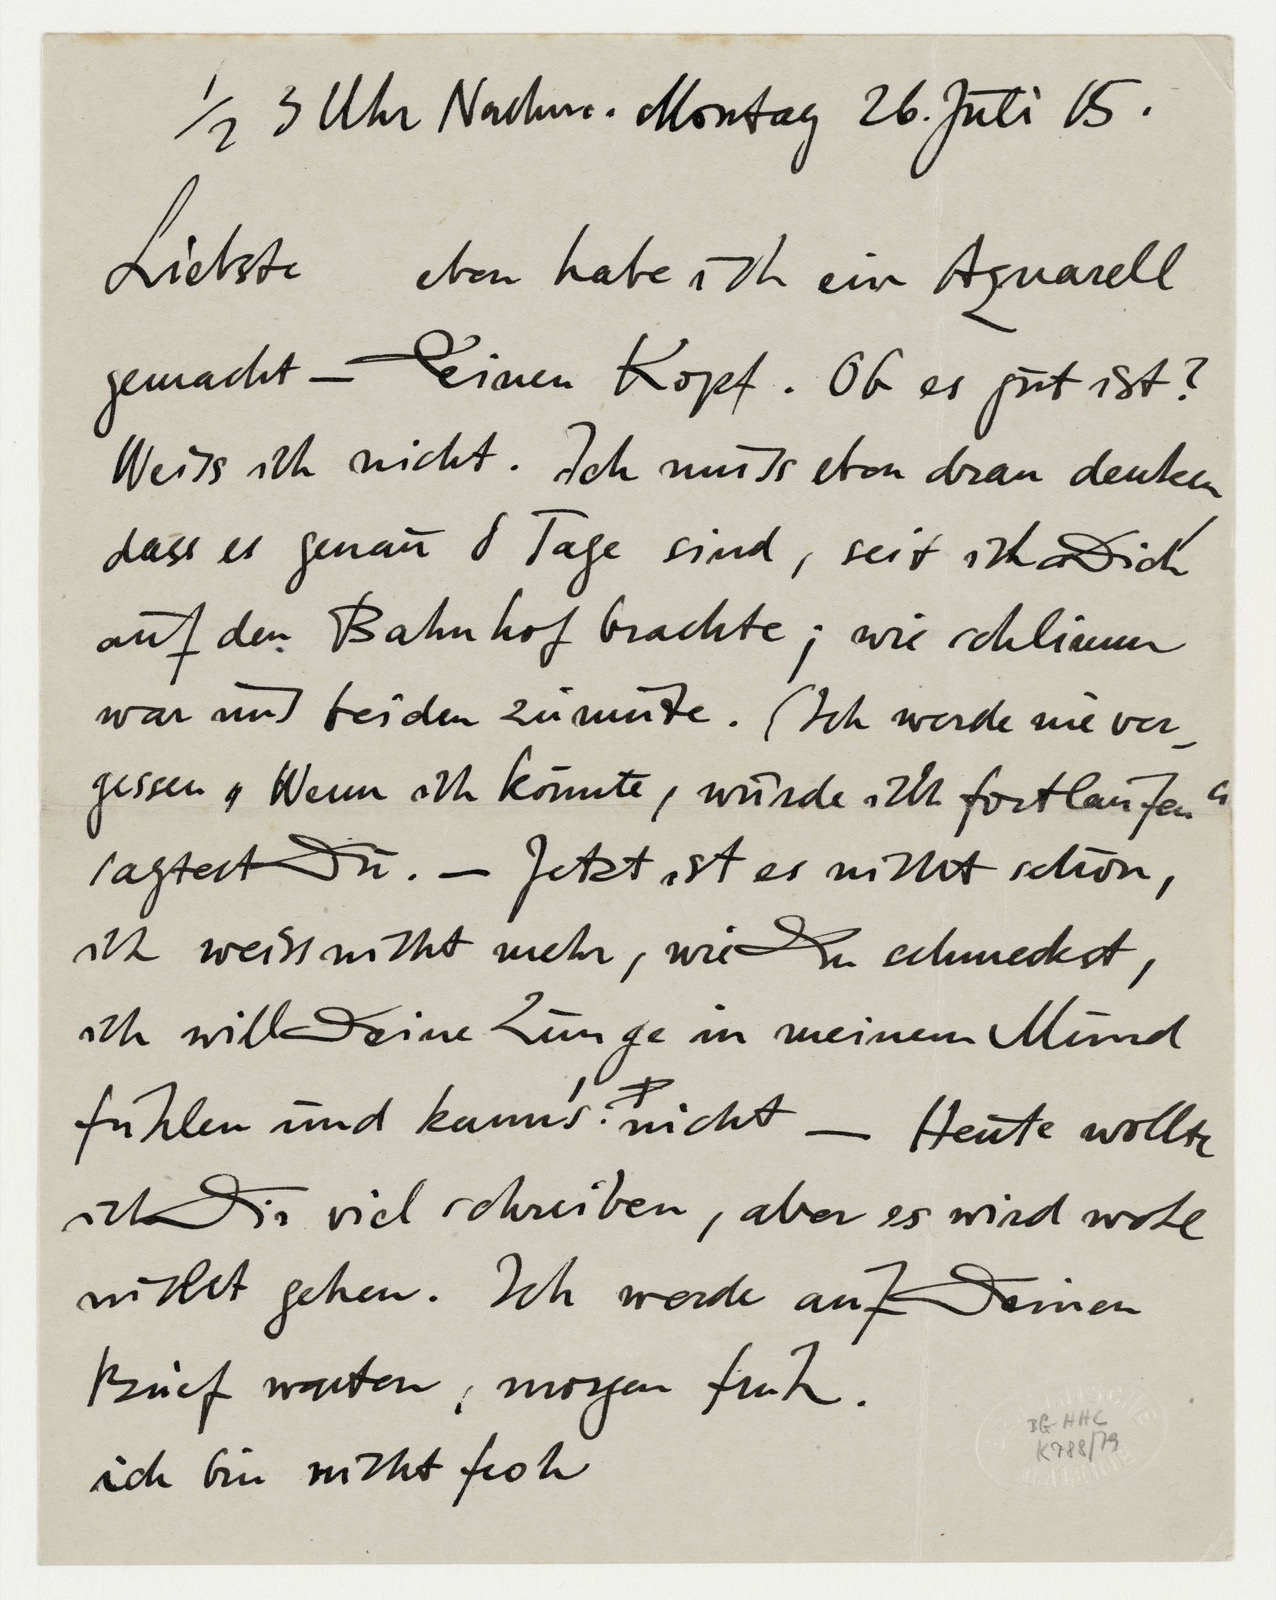 1/2 3 Uhr Nachm. Montag 26. Juli 15.
Liebste eben habe ich ein Aquarell
gemacht — Deinen Kopf. Ob es gut ist?
Weiss ich nicht. Ich muss eben dran denken
dass es genau 8 Tage sind, seit ich Dich
auf den Bahnhof brachte; wie schlimm
war uns beiden zumute. (Ich werde nie ver-
gessen „Wenn ich könnte, würde ich fortlaufen“
sagtest Du. — Jetzt ist es nicht schön,
ich weiss nicht mehr, wie Du schmeckst,
ich will Deine Zunge in meinem Mund
fühlen und kann's nicht — Heute wollte
ich Dir viel schreiben, aber es wird wohl
nicht gehen. Ich werde auf Deinen
Brief warten, morgen früh.
ich bin nicht froh
BG-HHC
K788/79